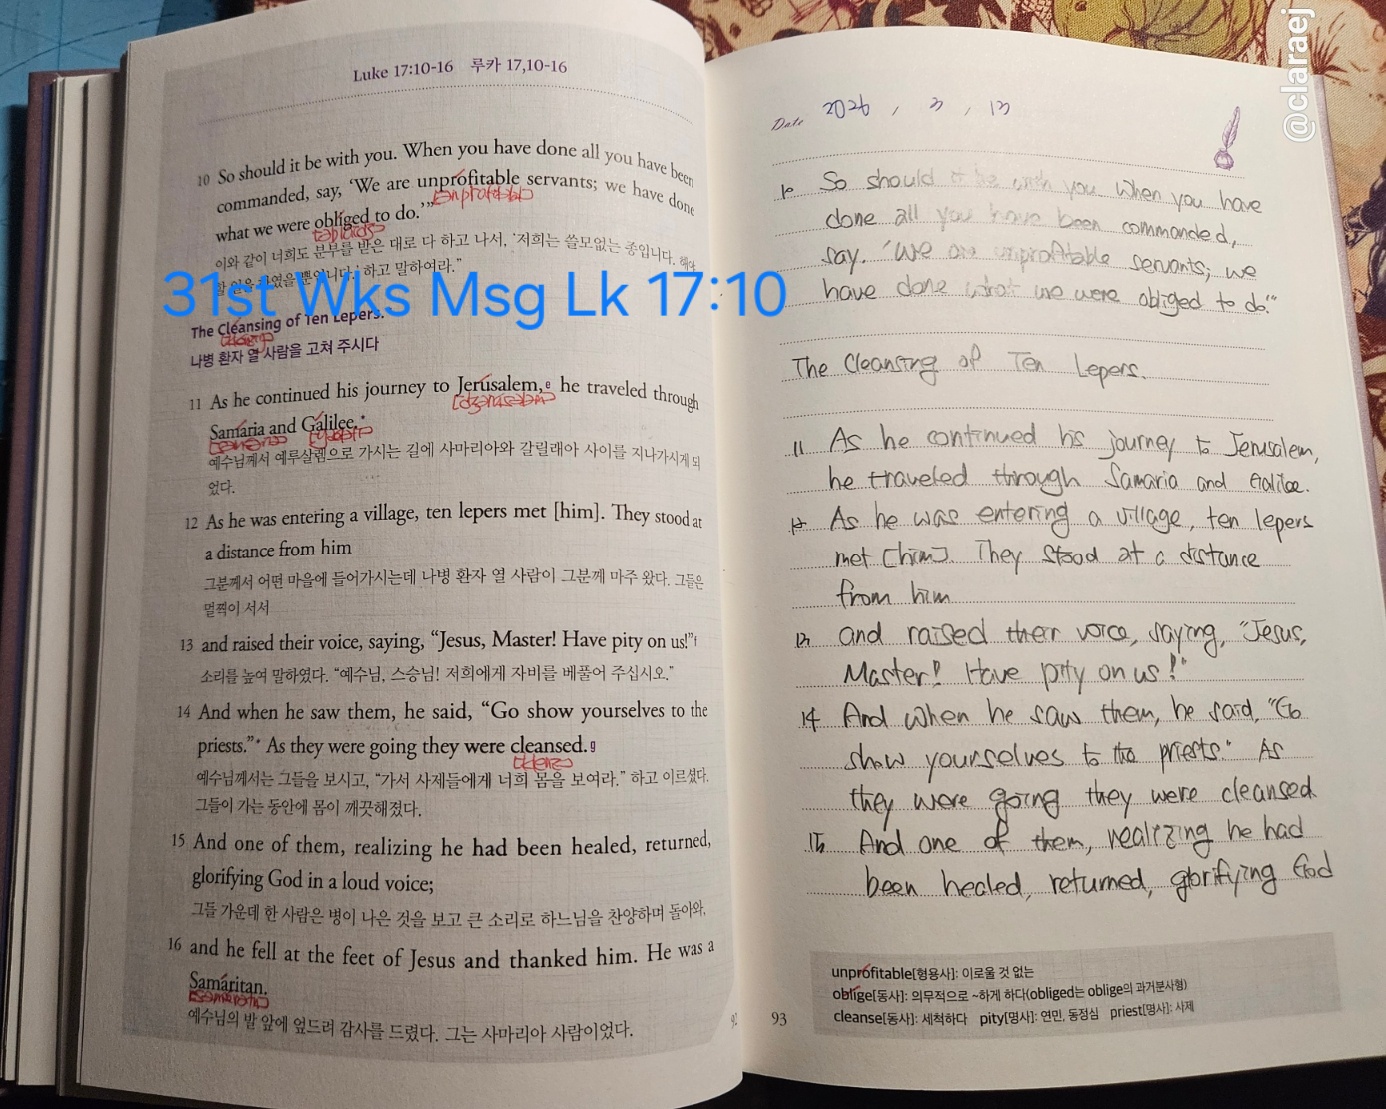 Luke 17:10-16 루카 17,10-16
10 So should it be with you. When you have done all you have been
commanded, say, ‘We are unprofitable servants; we have done
what we were obliged to do.’”
이와 같이 너희도 분부를 받은 대로 다 하고 나서, ‘저희는 쓸모없는 종입니다. 해야
할 일을 하였을 뿐입니다.’ 하고 말하여라.”
31st Wks Msg Lk 17:10
The Cleansing of Ten Lepers.
나병 환자 열 사람을 고쳐 주시다
11 As he continued his journey to Jerusalem,e he traveled through
Samaria and Galilee.*
예수님께서 예루살렘으로 가시는 길에 사마리아와 갈릴래아 사이를 지나가시게 되
었다.
12 As he was entering a village, ten lepers met [him]. They stood at
a distance from him
그분께서 어떤 마을에 들어가시는데 나병 환자 열 사람이 그분께 마주 왔다. 그들은
멀찍이 서서
13 and raised their voice, saying, “Jesus, Master! Have pity on us!”f
소리를 높여 말하였다. “예수님, 스승님! 저희에게 자비를 베풀어 주십시오.”
14 And when he saw them, he said, “Go show yourselves to the
priests.”* As they were going they were cleansed.g
예수님께서는 그들을 보시고, “가서 사제들에게 너희 몸을 보여라.” 하고 이르셨다.
그들이 가는 동안에 몸이 깨끗해졌다.
15 And one of them, realizing he had been healed, returned,
glorifying God in a loud voice;
그들 가운데 한 사람은 병이 나은 것을 보고 큰 소리로 하느님을 찬양하며 돌아와,
16 and he fell at the feet of Jesus and thanked him. He was a
Samaritan.
예수님의 발 앞에 엎드려 감사를 드렸다. 그는 사마리아 사람이었다.
92
@claraej
Date 2026, 3, 13
10 So should it be with you. When you have
done all you have been commanded,
say. ‘We are unprofitable servants; we
have done what we were obliged to do.’”
The Cleansing of Ten Lepers.
11 As he continued his journey to Jerusalem,
he traveled through Samaria and Galilee.
12 As he was entering a village, ten lepers
met [him]. They stood at a distance
from him
13 and raised their voice, saying, “Jesus,
Master! Have pity on us!”
14 And when he saw them, he said, “Go
show yourselves to the priests.” As
they were going they were cleansed
15 And one of them, realizing he had
been healed, returned, glorifying God
unprofitable[형용사]: 이로울 것 없는
oblige[동사]: 의무적으로 ~하게 하다(obliged는 oblige의 과거분사형)
cleanse[동사]: 세척하다 pity[명사]: 연민, 동정심 priest[명사]: 사제
93